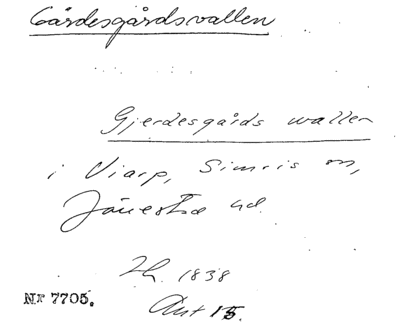 Gårdesgårdsvallen
Gjerdesgårds wallen
i Viarp, Simris sn,
Järrestad hd.
Lh. 1838
Akt 15.
Nr 7705.